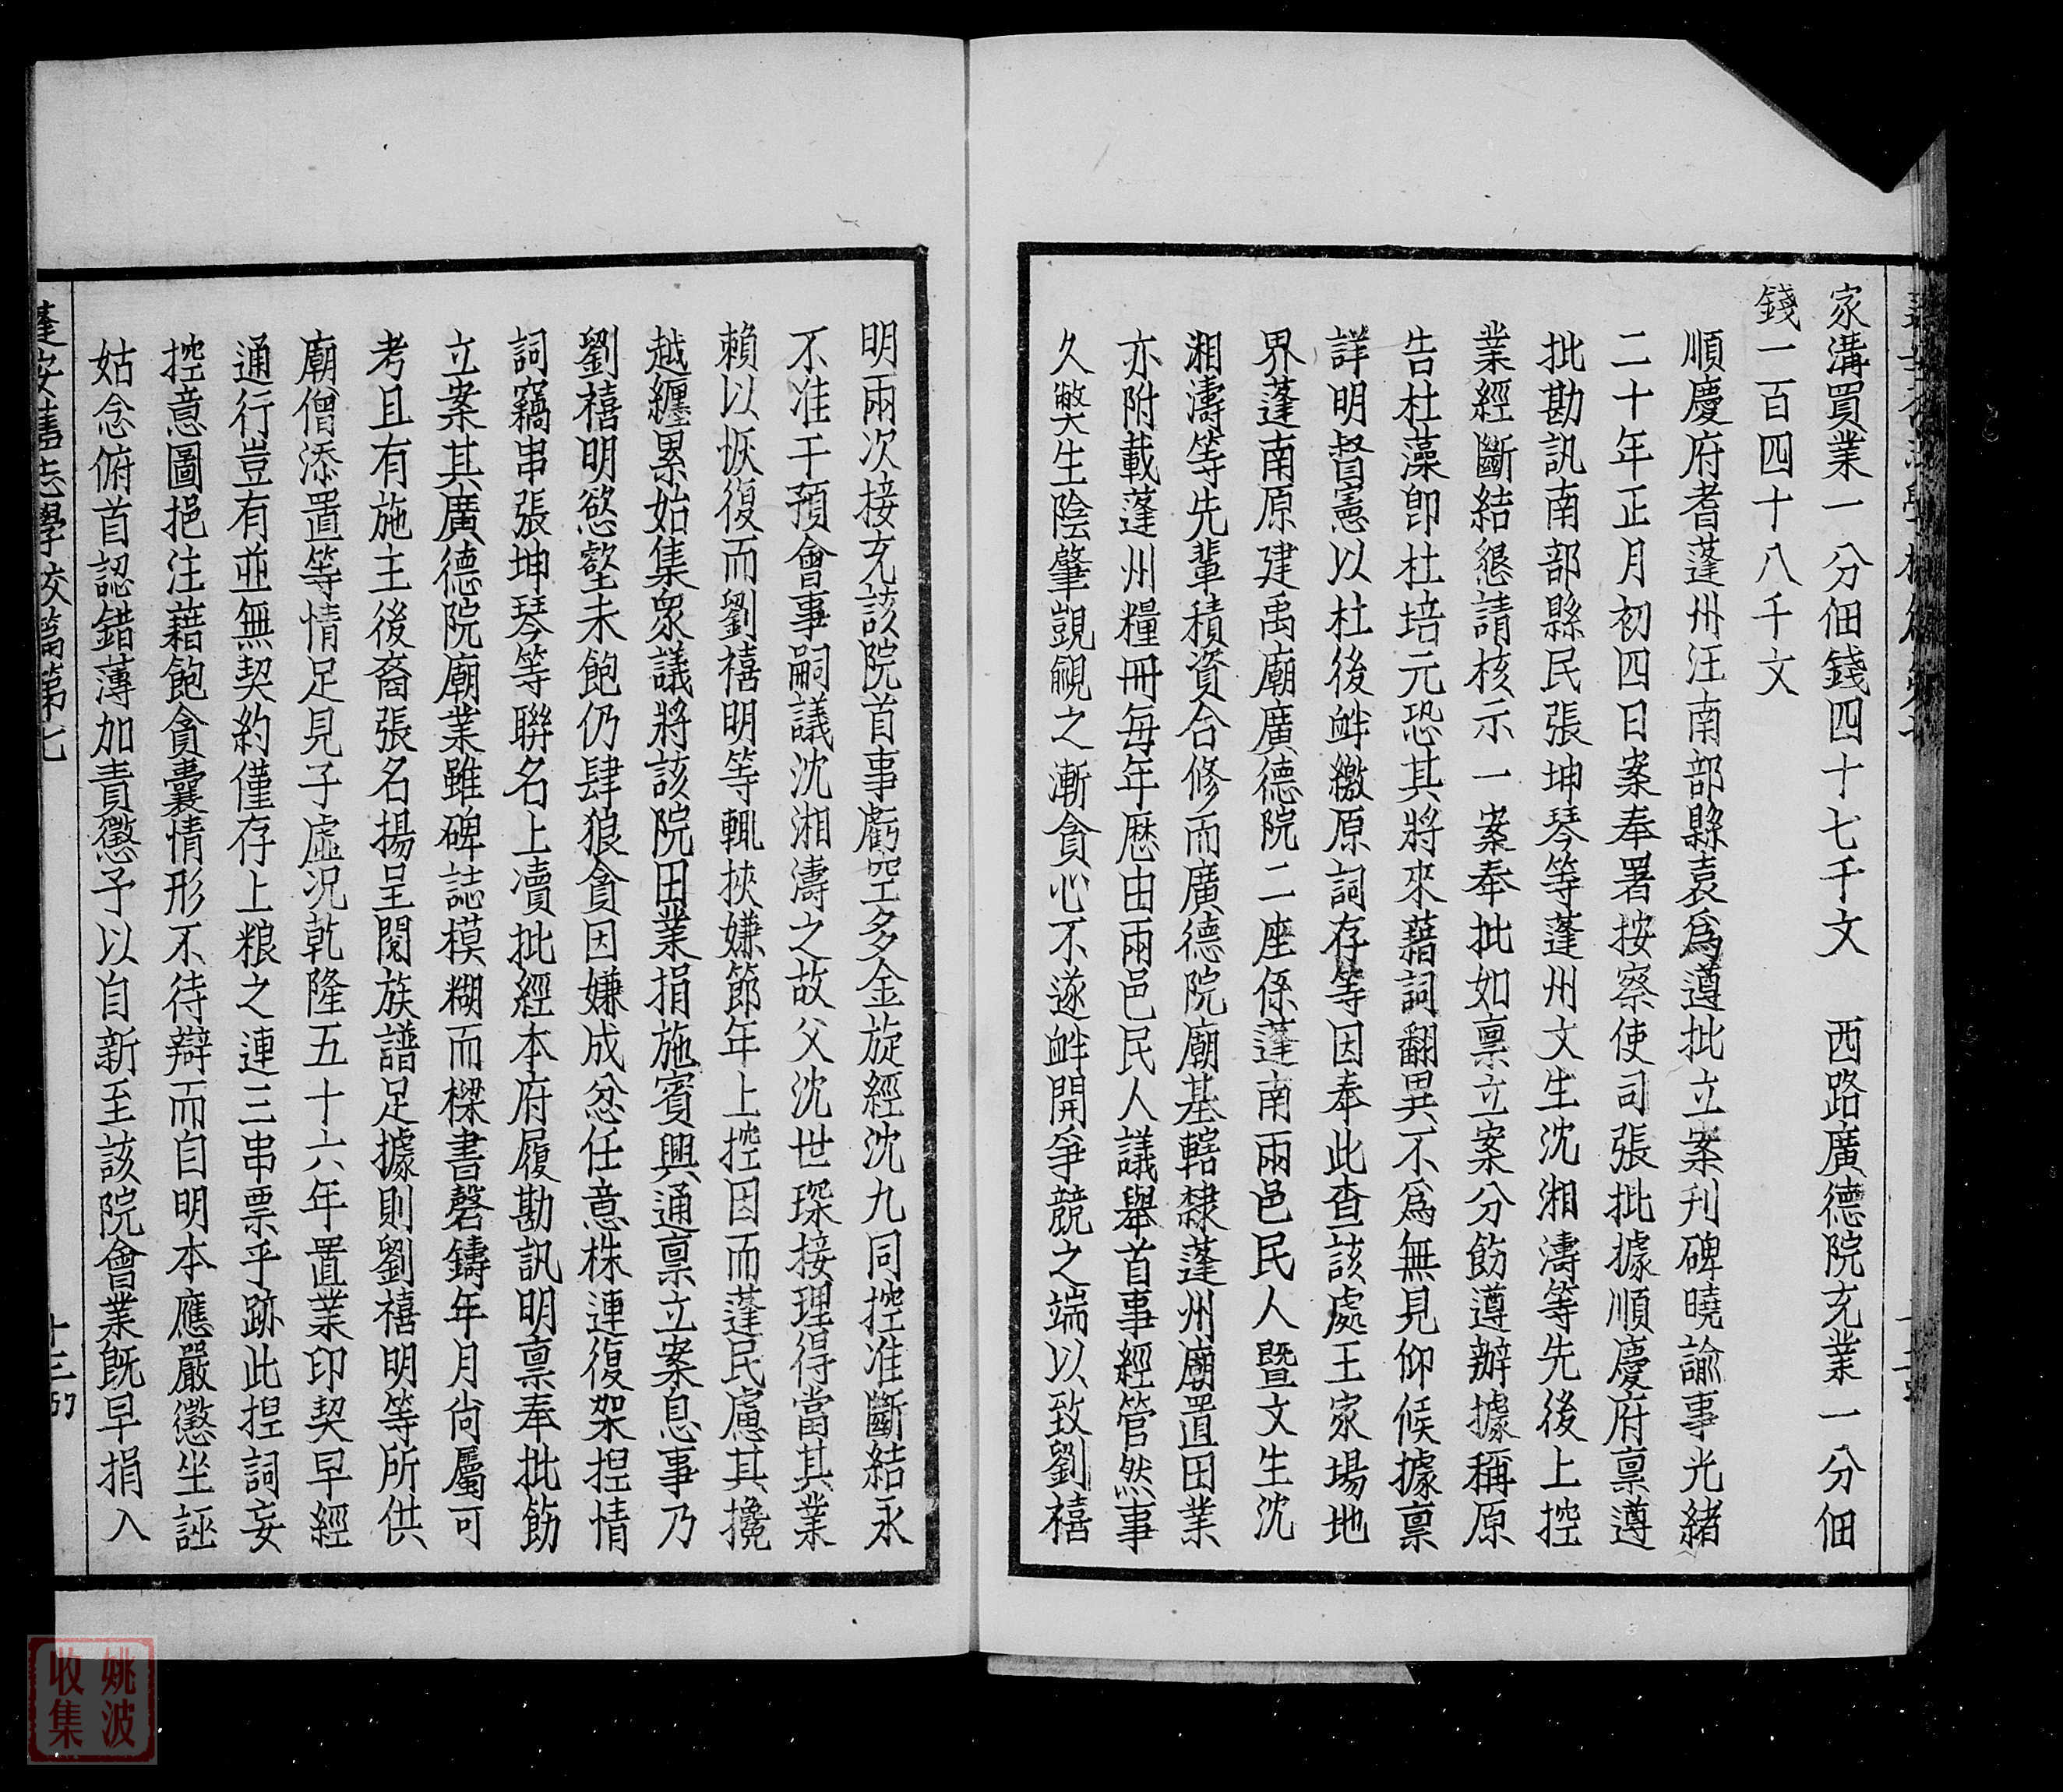 家溝買業一分佃錢四十七千文　西路廣德院充業一分佃
錢一百四十八千文
順慶府耆蓬州汪南部縣袁爲遵批立案刊碑曉諭事光緒
二十年正月初四日案奉署按察使司張批據順慶府禀遵
批勘訊南部縣民張坤琴等蓬州文生沈湘濤等先後上控
業經斷結懇請核示一案奉批如禀立案分飭遵辦據稱原
告杜藻卽杜培元恐其將來藉詞翻異不爲無見仰候據禀
詳明督憲以杜後衅繳原詞存等因奉此查該處王家場地
界蓬南原建禹廟廣德院二座係蓬南兩邑民人暨文生沈
湘濤等先輩積資合修而廣德院廟基轄隸蓬州廟置田業
亦附載蓬州糧冊每年歷由兩邑民人議舉首事經管然事
久獘生陰肇覬覦之漸貪心不遂衅開爭競之端以致劉禧
明兩次接充該院首事虧空多金旋經沈九同控准斷結永
不准干預會事嗣議沈湘濤之故父沈世琛接理得當其業
賴以恢復而劉禧明等輒挾嫌節年上控因而蓬民慮其攙
越纏累始集衆議將該院田業捐施賓興通禀立案息事乃
劉禧明慾壑未飽仍肆狼貪因嫌成忿任意株連復架捏情
詞竊串張坤琴等聯名上瀆批經本府履勘訊明禀奉批飭
立案其廣德院廟業雖碑誌模糊而樑書磬鑄年月尙屬可
考且有施主後裔張名揚呈閱族譜足據則劉禧明等所供
廟僧添置等情足見子虛况乾隆五十六年置業印契早經
通行豈有並無契約僅存上粮之連三串票乎跡此捏詞妄
控意圖挹注藉飽貪囊情形不待辯而自明本應嚴懲坐誣
姑念俯首認錯薄加責懲予以自新至該院會業既早捐入
蓬安舊志學校篇第七
十三
姚波
收集